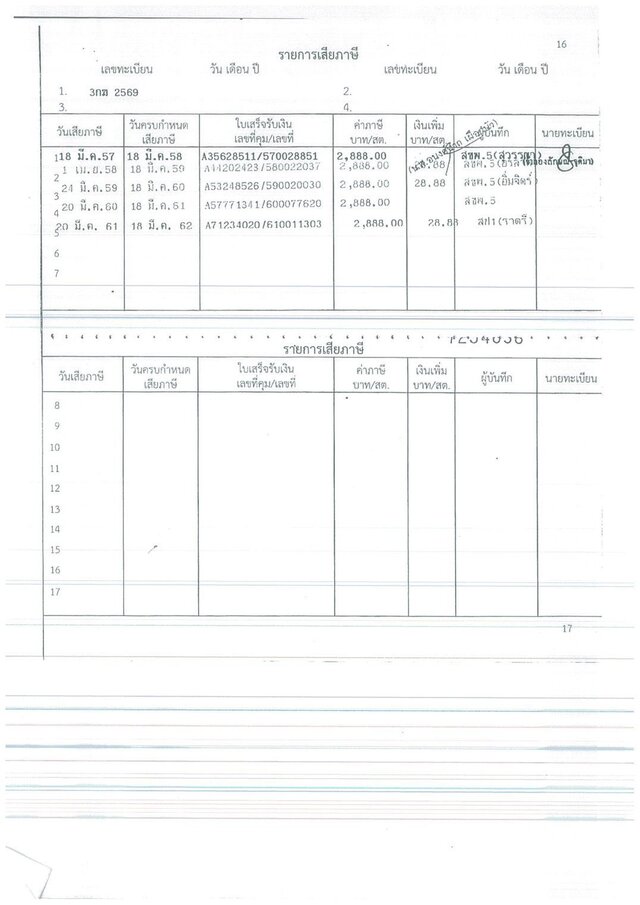 16
รายการเสียภาษี
เลขทะเบียน วัน เดือน ปี เลขทะเบียน วัน เดือน ปี
1. 3กฆ 2569 2.
3. 4.
วันเสียภาษี วันครบกำหนดเสียภาษี ใบเสร็จรับเงิน เลขที่คุม/เลขที่ ค่าภาษี บาท/สต. เงินเพิ่ม บาท/สต. ผู้บันทึก นายทะเบียน
1 18 มี.ค.57 18 มี.ค.58 A35628511/570028851 2,888.00 สขพ.5(สุวรรณา)
2 1 เม.ย.58 18 มี.ค.59 A44202423/580022037 2,888.00 28.88 สขพ.5
3 24 มี.ค.59 18 มี.ค.60 A53248526/590020030 2,888.00 28.88 สขพ.5(อิ่มจิตร์)
4 20 มี.ค.60 18 มี.ค.61 A57771341/600077620 2,888.00 สขพ.5
5 20 มี.ค. 61 18 มี.ค. 62 A71234020/610011303 2,888.00 28.88 (ราตรี)
6
7
รายการเสียภาษี
วันเสียภาษี วันครบกำหนดเสียภาษี ใบเสร็จรับเงิน เลขที่คุม/เลขที่ ค่าภาษี บาท/สต. เงินเพิ่ม บาท/สต. ผู้บันทึก นายทะเบียน
8
9
10
11
12
13
14
15
16
17
17